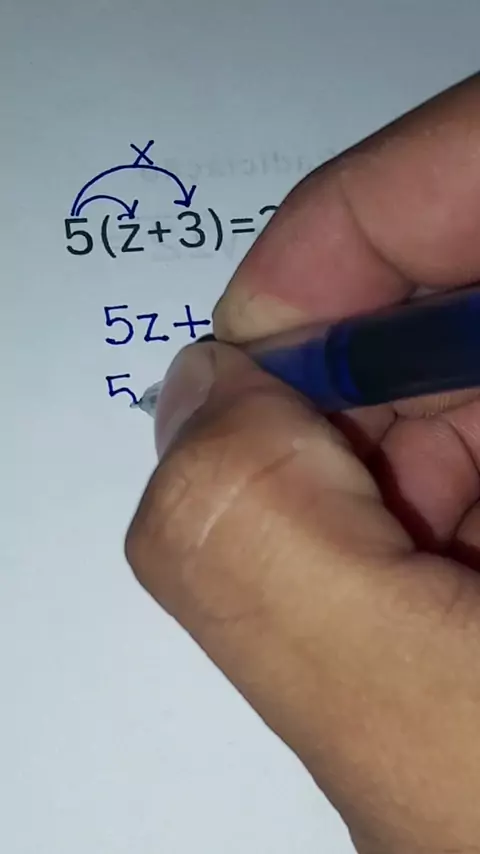 x
5(z+3)=
5z+
5